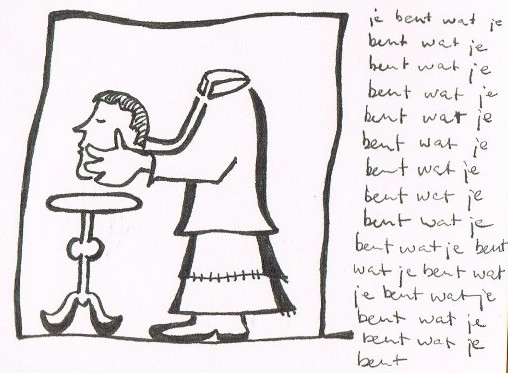 je bent wat je
bent wat je
bent wat je
bent wat je
bent wat je
bent wat je
bent wat je
bent wat je
bent wat je
bent wat je bent
wat je bent wat
je bent wat je
bent wat je
bent wat je
bent